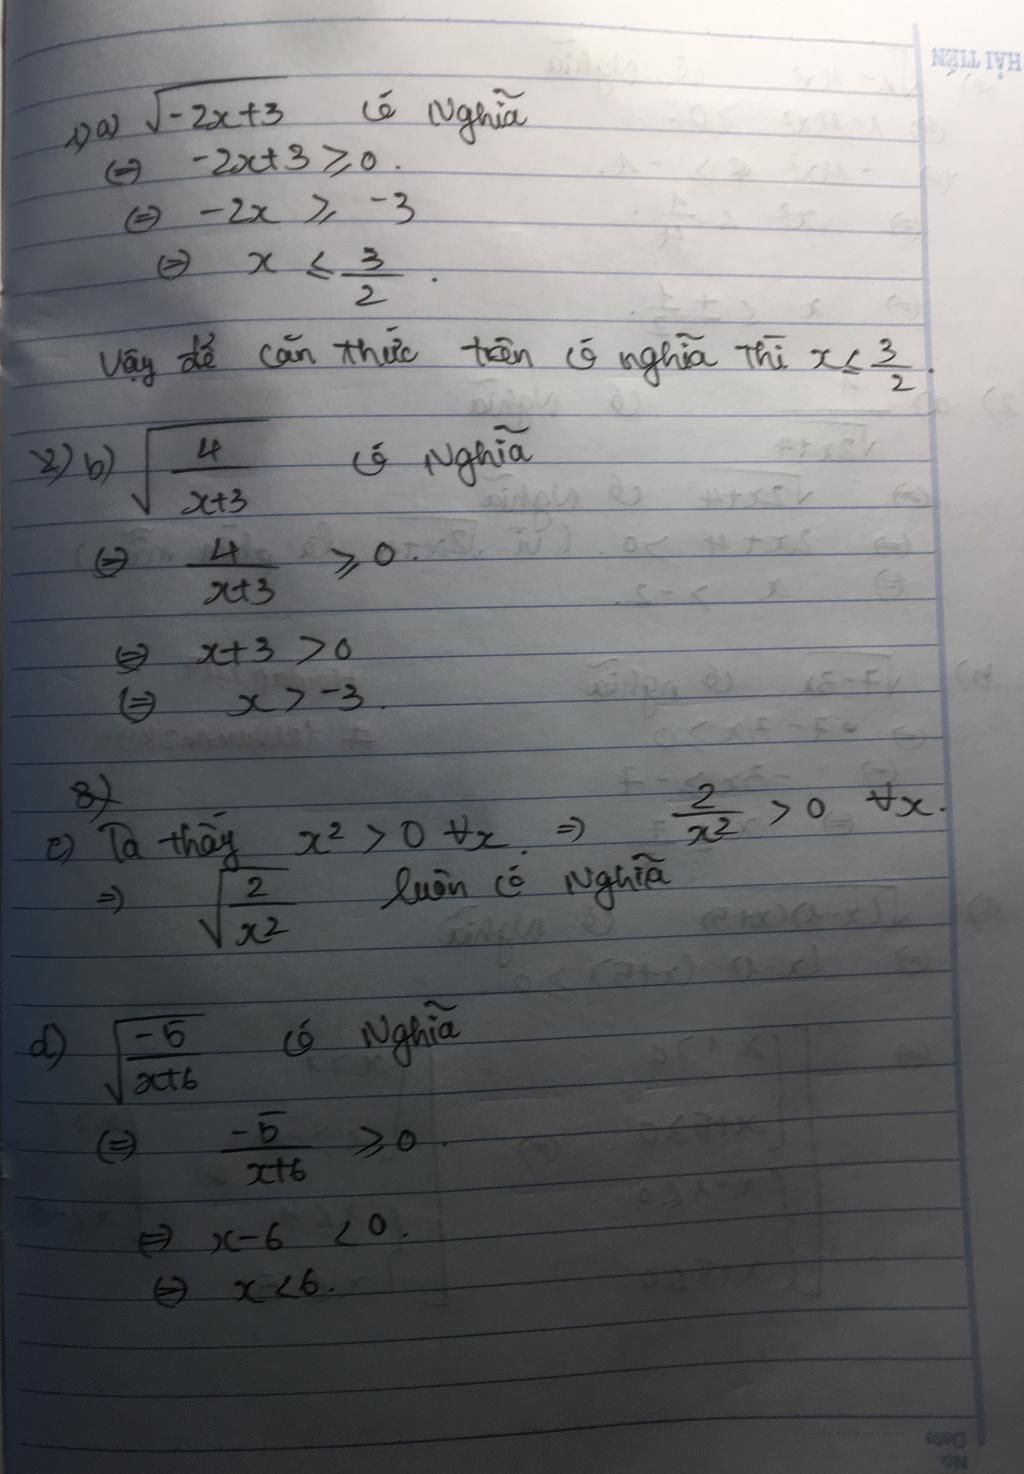 HẢI TIẾN
1) a) √(-2x+3) có Nghĩa
(=) -2x+3 ⩾ 0.
(=) -2x ⩾ -3
(=) x ≤ 3/2.
Vậy để căn thức trên có nghĩa thì x ≤ 3/2.
b) √(4/(x+3)) có Nghĩa
(=) 4/(x+3) ⩾ 0.
(=) x+3 > 0
(=) x > -3.
c) Ta thấy x² > 0 ∀x. => 2/x² > 0 ∀x.
=> √(2/x²) luôn có Nghĩa
d) √(-5/(x+6)) có Nghĩa
(=) -5/(x+6) ⩾ 0.
(=) x-6 < 0.
(=) x < 6.
No.
Date